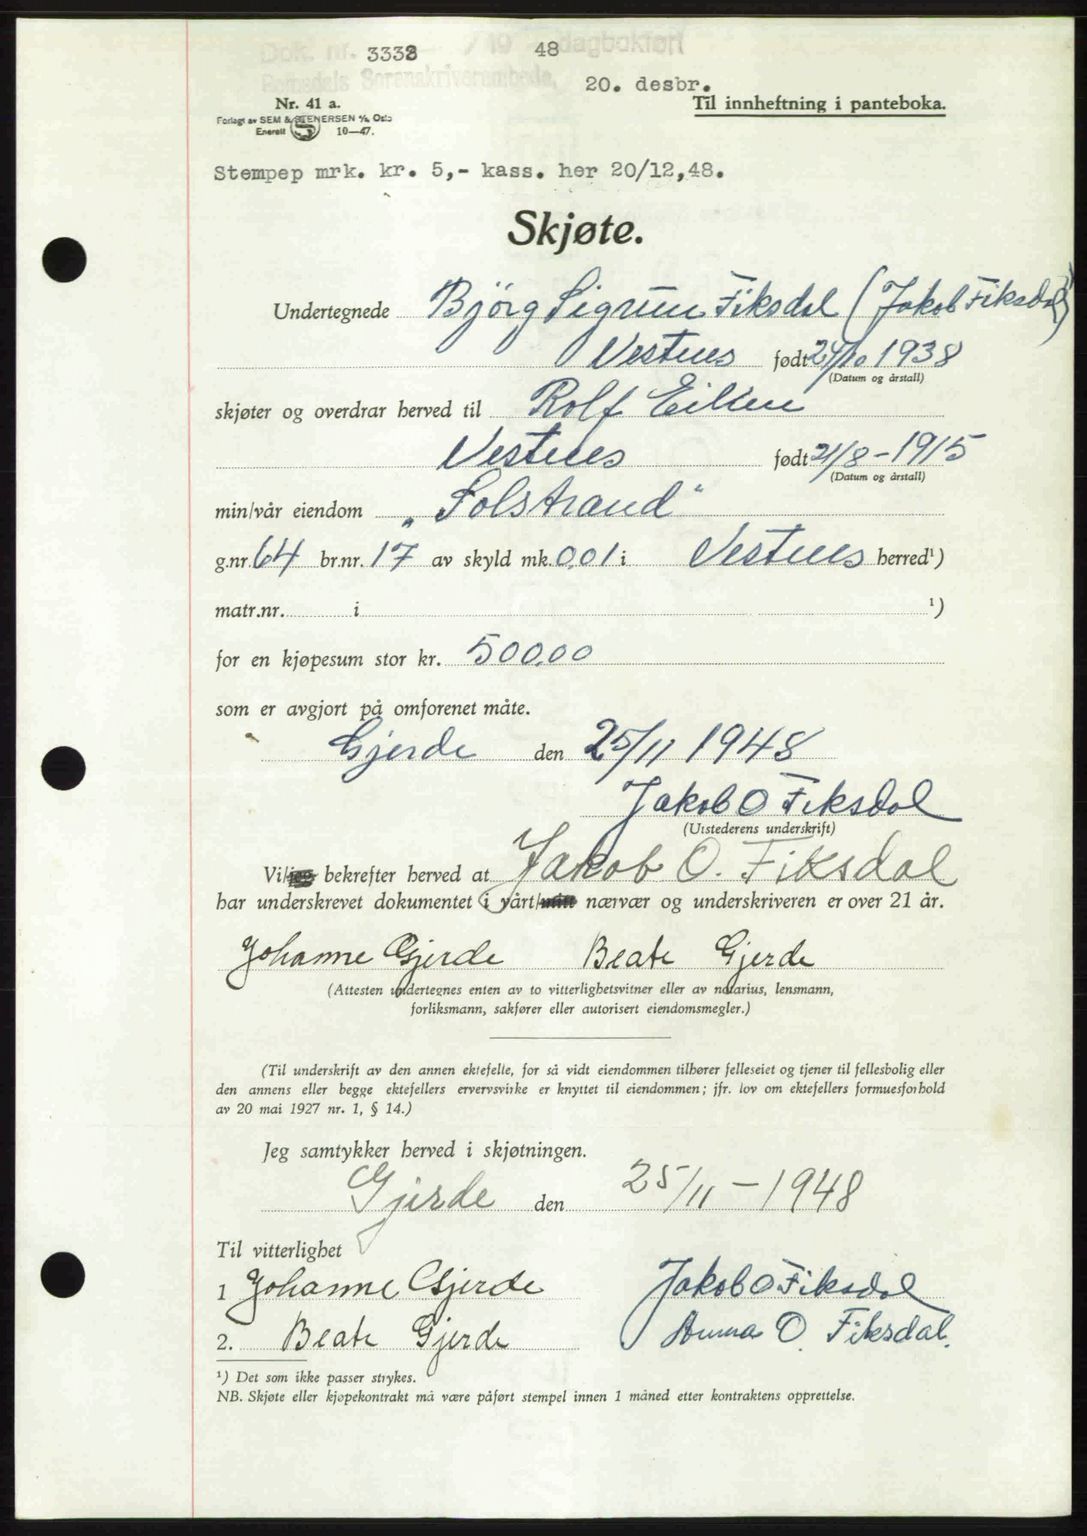 Dok. nr. 3338 /19 48 dagbokført
Romsdals Sorenskriverembede, 20. desbr.
Nr. 41 a.
Til innheftning i panteboka.
Forlagt av SEM & STENERSEN A/S, Oslo
Enerett 10—47.
Stempep mrk. kr. 5,- kass. her 20/12,48.
Skjøte.
Undertegnede Björg Sigrun Fiksdal (Jakob Fiksdal)
Vestnes født 24/10 1938
(Datum og årstall)
skjøter og overdrar herved til Rolf Eiken
Vestnes født 21/8-1915
(Datum og årstall)
min/vår eiendom „Solstrand"
g.nr. 64 br.nr. 17 av skyld mk. 0,01 i Vestnes herred¹)
matr.nr. i ¹)
for en kjøpesum stor kr. 500,00
som er avgjort på omforenet måte.
Gjerde den 25/11 1948
Jakob O Fiksdal
(Utstederens underskrift)
Vi/jeg bekrefter herved at Jakob O. Fiksdal
har underskrevet dokumentet i vårt/mitt nærvær og underskriveren er over 21 år.
Johanne Gjerde Beate Gjerde
(Attesten undertegnes enten av to vitterlighetsvitner eller av notarius, lensmann,
forliksmann, sakfører eller autorisert eiendomsmegler.)
(Til underskrift av den annen ektefelle, for så vidt eiendommen tilhører felleseiet og tjener til fellesbolig eller
den annens eller begge ektefellers ervervsvirke er knyttet til eiendommen; jfr. lov om ektefellers formuesforhold
av 20 mai 1927 nr. 1, § 14.)
Jeg samtykker herved i skjøtningen.
Gjerde den 25/11-1948
Til vitterlighet
1 Johanne Gjerde Jakob O Fiksdal
2. Beate Gjerde Anna O. Fiksdal.
¹) Det som ikke passer strykes.
NB. Skjøte eller kjøpekontrakt må være påført stempel innen 1 måned etter kontraktens opprettelse.